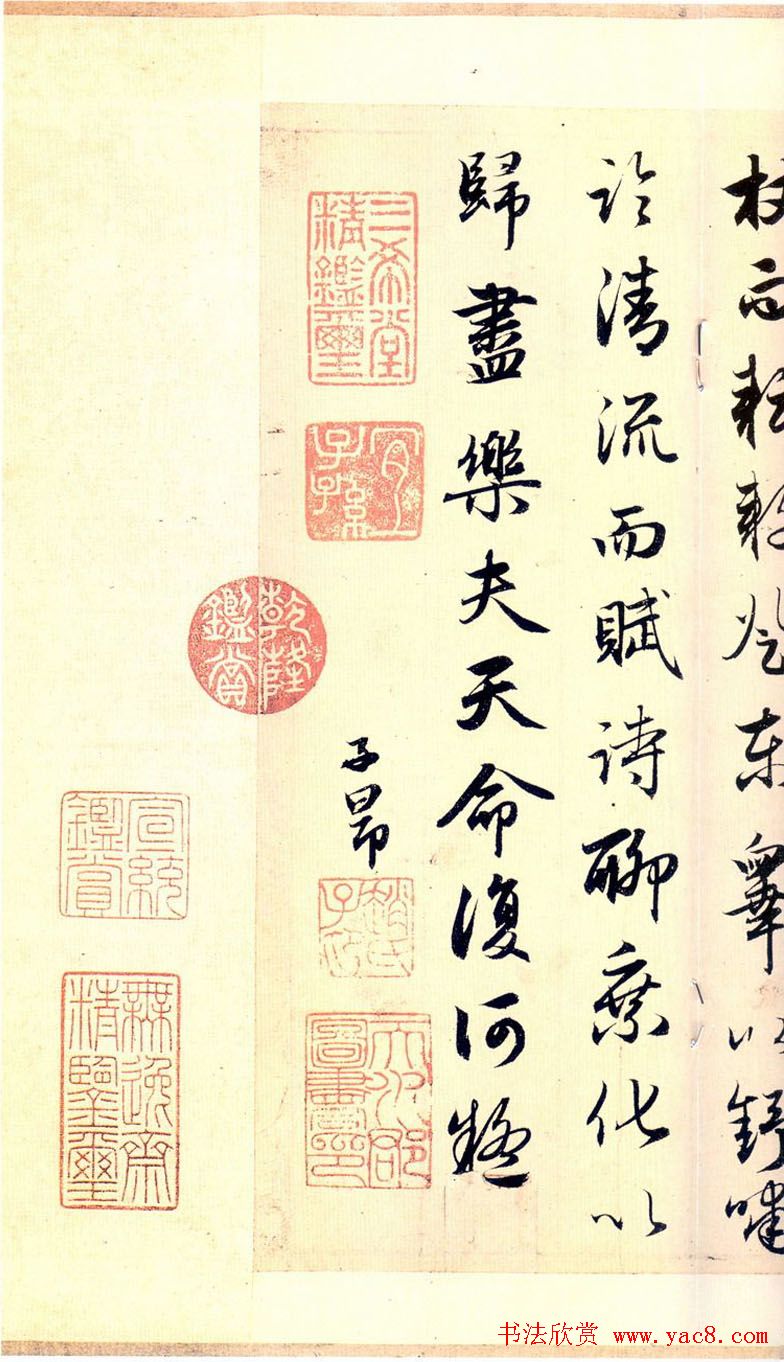 杖而耘耔登東皋以舒嘯
臨清流而賦詩聊乘化以
歸盡樂夫天命復何疑
三希堂精鑑璽
宜子孫
子昂
趙氏子昂
天水郡圖書印
乾隆鑑賞
宣統鑑賞
無逸齋精鑑璽
书法欣赏 www.yac8.com